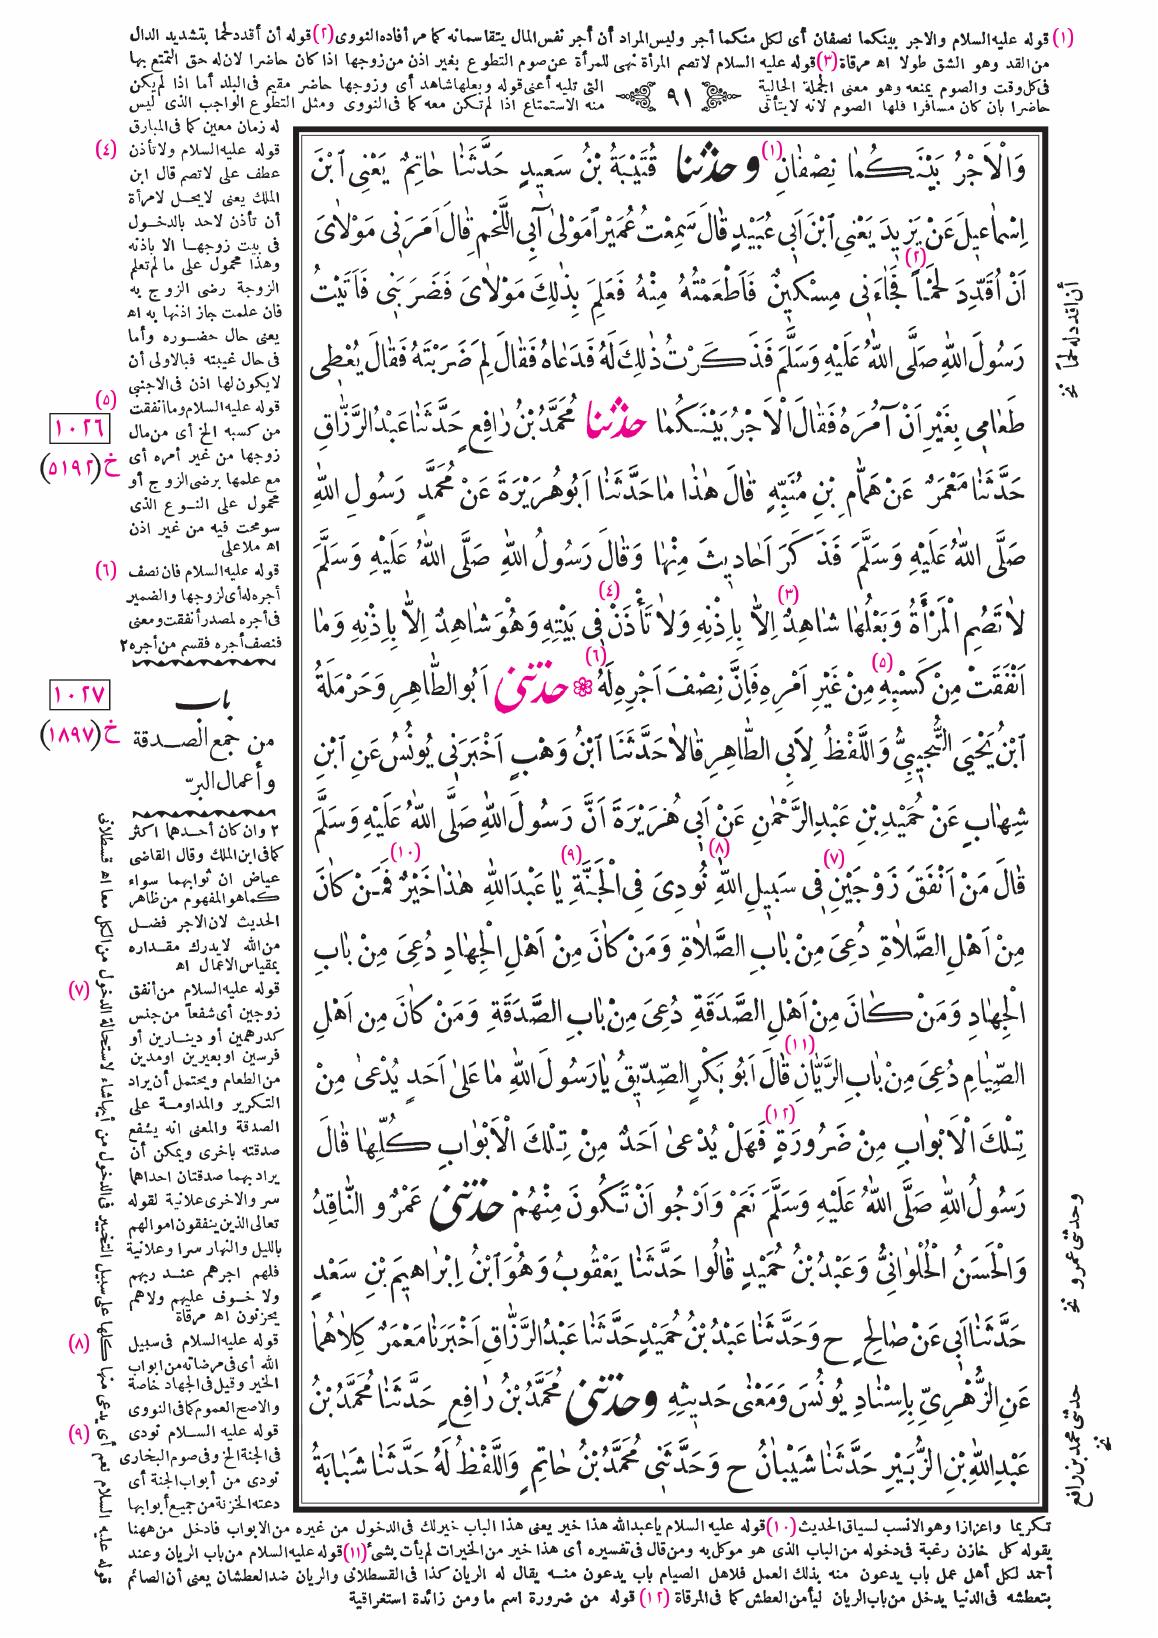 (١) قوله عليه السلام والاجر بينكما نصفان أى لكل منكما أجر وليس المراد أن أجر نفس المال يتقاسمانه كما مر أفاده النووى (٢) قوله أن أقدد لحما بتشديد الدال
من القد وهو الشق طولا اه مرقاة (٣) قوله عليه السلام لا تصم المرأة نهى للمرأة عن صوم التطوع بغير اذن من زوجها اذا كان حاضرا لان له حق التمتع بها
فى كل وقت والصوم يمنعه وهو معنى الجملة الحالية
التى تليه أعنى قوله وبعلها شاهد أى وزوجها حاضر مقيم فى البلد أما اذا لم يكن
حاضرا بان كان مسافرا فلها الصوم لانه لا يتأتى
منه الاستمتاع اذا لم تكن معه كما فى النووى ومثل التطوع الواجب الذى ليس
٩١
له زمان معين كما فى المبارق
وَالْاَجْرُ بَيْنَكُمَا نِصْفَانِ (١) وحدثنا قُتَيْبَةُ بْنُ سَعِيدٍ حَدَّثَنَا حَاتِمٌ يَعْنِى ابْنَ
اِسْمَاعِيلَ عَنْ يَزِيدَ يَعْنِى ابْنَ اَبِى عُبَيْدٍ قَالَ سَمِعْتُ عُمَيْراً مَوْلَى آبِى اللَّحْمِ قَالَ اَمَرَنِى مَوْلَاىَ
اَنْ اُقَدِّدَ لَحْماً (٢) فَجَاءَنِى مِسْكِينٌ فَاَطْعَمْتُهُ مِنْهُ فَعَلِمَ بِذٰلِكَ مَوْلَاىَ فَضَرَبَنِى فَاَتَيْتُ
رَسُولَ اللهِ صَلَّى اللهُ عَلَيْهِ وَسَلَّمَ فَذَكَرْتُ ذٰلِكَ لَهُ فَدَعَاهُ فَقَالَ لِمَ ضَرَبْتَهُ فَقَالَ يُعْطِى
طَعَامِى بِغَيْرِ اَنْ آمُرَهُ فَقَالَ الْاَجْرُ بَيْنَكُمَا حدثنا مُحَمَّدُ بْنُ رَافِعٍ حَدَّثَنَا عَبْدُ الرَّزَّاقِ
حَدَّثَنَا مَعْمَرٌ عَنْ هَمَّامِ بْنِ مُنَبِّهٍ قَالَ هٰذَا مَا حَدَّثَنَا اَبُو هُرَيْرَةَ عَنْ مُحَمَّدٍ رَسُولِ اللهِ
صَلَّى اللهُ عَلَيْهِ وَسَلَّمَ فَذَكَرَ اَحَادِيثَ مِنْهَا وَقَالَ رَسُولُ اللهِ صَلَّى اللهُ عَلَيْهِ وَسَلَّمَ
لَا تَصُمِ الْمَرْأَةُ وَبَعْلُهَا شَاهِدٌ (٣) اِلَّا بِاِذْنِهِ وَلَا تَأْذَنْ (٤) فِى بَيْتِهِ وَهُوَ شَاهِدٌ اِلَّا بِاِذْنِهِ وَمَا
اَنْفَقَتْ مِنْ كَسْبِهِ (٥) مِنْ غَيْرِ اَمْرِهِ فَاِنَّ نِصْفَ اَجْرِهِ لَهُ (٦) حدثنى اَبُو الطَّاهِرِ وَحَرْمَلَةُ
ابْنُ يَحْيَى التُّجِيبِىُّ وَاللَّفْظُ لِاَبِى الطَّاهِرِ قَالَا حَدَّثَنَا ابْنُ وَهْبٍ اَخْبَرَنِى يُونُسُ عَنِ ابْنِ
شِهَابٍ عَنْ حُمَيْدِ بْنِ عَبْدِ الرَّحْمٰنِ عَنْ اَبِى هُرَيْرَةَ اَنَّ رَسُولَ اللهِ صَلَّى اللهُ عَلَيْهِ وَسَلَّمَ
قَالَ مَنْ اَنْفَقَ زَوْجَيْنِ (٧) فِى سَبِيلِ اللهِ (٨) نُودِىَ فِى الْجَنَّةِ (٩) يَا عَبْدَ اللهِ هٰذَا خَيْرٌ (١٠) فَمَنْ كَانَ
مِنْ اَهْلِ الصَّلَاةِ دُعِىَ مِنْ بَابِ الصَّلَاةِ وَمَنْ كَانَ مِنْ اَهْلِ الْجِهَادِ دُعِىَ مِنْ بَابِ
الْجِهَادِ وَمَنْ كَانَ مِنْ اَهْلِ الصَّدَقَةِ دُعِىَ مِنْ بَابِ الصَّدَقَةِ وَمَنْ كَانَ مِنْ اَهْلِ
الصِّيَامِ دُعِىَ مِنْ بَابِ الرَّيَّانِ (١١) قَالَ اَبُو بَكْرٍ الصِّدِّيقُ يَا رَسُولَ اللهِ مَا عَلَى اَحَدٍ يُدْعَى مِنْ
تِلْكَ الْاَبْوَابِ مِنْ ضَرُورَةٍ (١٢) فَهَلْ يُدْعَى اَحَدٌ مِنْ تِلْكَ الْاَبْوَابِ كُلِّهَا قَالَ
رَسُولُ اللهِ صَلَّى اللهُ عَلَيْهِ وَسَلَّمَ نَعَمْ وَاَرْجُو اَنْ تَكُونَ مِنْهُمْ حدثنى عَمْرٌو النَّاقِدُ
وَالْحَسَنُ الْحُلْوَانِىُّ وَعَبْدُ بْنُ حُمَيْدٍ قَالُوا حَدَّثَنَا يَعْقُوبُ وَهُوَ ابْنُ اِبْرَاهِيمَ بْنِ سَعْدٍ
حَدَّثَنَا اَبِى عَنْ صَالِحٍ ح وَحَدَّثَنَا عَبْدُ بْنُ حُمَيْدٍ حَدَّثَنَا عَبْدُ الرَّزَّاقِ اَخْبَرَنَا مَعْمَرٌ كِلَاهُمَا
عَنِ الزُّهْرِىِّ بِاِسْنَادِ يُونُسَ وَمَعْنَى حَدِيثِهِ وحدثنى مُحَمَّدُ بْنُ رَافِعٍ حَدَّثَنَا مُحَمَّدُ بْنُ
عَبْدِ اللهِ بْنِ الزُّبَيْرِ حَدَّثَنَا شَيْبَانُ ح وَحَدَّثَنِى مُحَمَّدُ بْنُ حَاتِمٍ وَاللَّفْظُ لَهُ حَدَّثَنَا شَبَابَةُ
أن اقدد له لحماً نخ
وحدثنى عمرو نخ
حدثنى محمد بن رافع نخ
(٤) قوله عليه السلام ولا تأذن
عطف على لا تصم قال ابن
الملك يعنى لا يحل لامرأة
أن تأذن لاحد بالدخول
فى بيت زوجها الا باذنه
وهذا محمول على ما لم تعلم
الزوجة رضى الزوج به
فان علمت جاز اذنها به اه
يعنى حال حضوره وأما
فى حال غيبته فبالاولى أن
لا يكون لها اذن فى الاجنبى
(٥) قوله عليه السلام وما أنفقت
من كسبه الخ أى من مال
زوجها من غير أمره أى
مع علمها برضى الزوج أو
محمول على النوع الذى
سومحت فيه من غير اذن
اه ملا على
١٠٢٦
خ (٥١٩٢)
(٦) قوله عليه السلام فان نصف
أجره له أى لزوجها والضمير
فى أجره لمصدر أنفقت ومعنى
فنصف أجره فقسم من أجره ٢
١٠٢٧
خ (١٨٩٧)
باب
من جمع الصدقة
وأعمال البرّ
٢ وان كان أحدهما أكثر
كما فى ابن الملك وقال القاضى
عياض ان ثوابهما سواء
كما هو المفهوم من ظاهر
الحديث لان الاجر فضل
من الله لا يدرك مقداره
بمقياس الاعمال اه
(٧) قوله عليه السلام من أنفق
زوجين أى شفعاً من جنس
كدرهمين أو دينارين أو
فرسين او بعيرين او مدين
من الطعام ويحتمل أن يراد
التكرير والمداومة على
الصدقة والمعنى انه يشفع
صدقته باخرى ويمكن أن
يراد بهما صدقتان احداهما
سر والاخرى علانية لقوله
تعالى الذين ينفقون اموالهم
بالليل والنهار سرا وعلانية
فلهم اجرهم عند ربهم
ولا خوف عليهم ولا هم
يحزنون اه مرقاة
(٨) قوله عليه السلام فى سبيل
الله أى فى مرضاته من ابواب
الخير وقيل فى الجهاد خاصة
والاصح العموم كما فى النووى
(٩) قوله عليه السلام نودى
فى الجنة الخ وفى صوم البخارى
نودى من أبواب الجنة أى
دعته الخزنة من جميع أبوابها
قوله عليه السلام نعم أى يدعى منها كلها على سبيل التخيير فى الدخول من أيها شاء لاستحالة الدخول من الكل معا اه قسطلانى
تكريما واعزازا وهو الانسب لسياق الحديث (١٠) قوله عليه السلام يا عبد الله هذا خير يعنى هذا الباب خير لك فى الدخول من غيره من الابواب فادخل من ههنا
يقوله كل خازن رغبة فى دخوله من الباب الذى هو موكل به ومن قال فى تفسيره أى هذا خير من الخيرات لم يأت بشىء (١١) قوله عليه السلام من باب الريان وعند
أحمد لكل أهل عمل باب يدعون منه بذلك العمل فلاهل الصيام باب يدعون منه يقال له الريان كذا فى القسطلانى والريان ضد العطشان يعنى أن الصائم
بتعطشه فى الدنيا يدخل من باب الريان ليأمن العطش كما فى المرقاة (١٢) قوله من ضرورة اسم ما ومن زائدة استغراقية